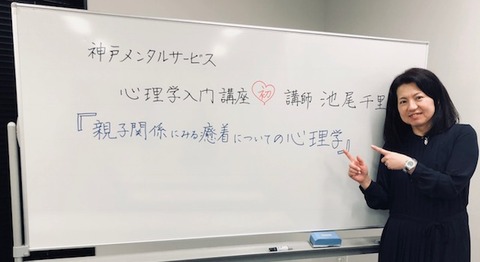 神戸メンタルサービス
心理学入門講座 初 講師 池尾千里
『親子関係にみる癒着についての心理学』